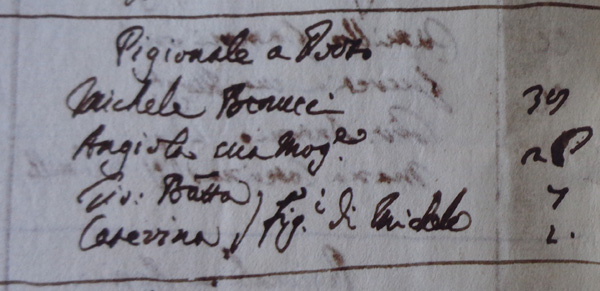 Pigionale a Pozzo
Michele Branci 39
Angiola sua Mog.e 28
Gio: Batta 7
Caterina } fig.i di Michele 2.